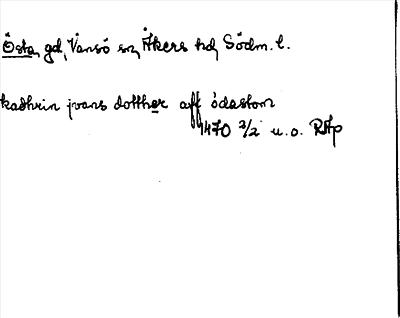 Östa, gd, Vansö sn, Åkers hd, Södm. l.
kadhrin jvans dotther aff ödastom
1470 2/2 u.o. RAp